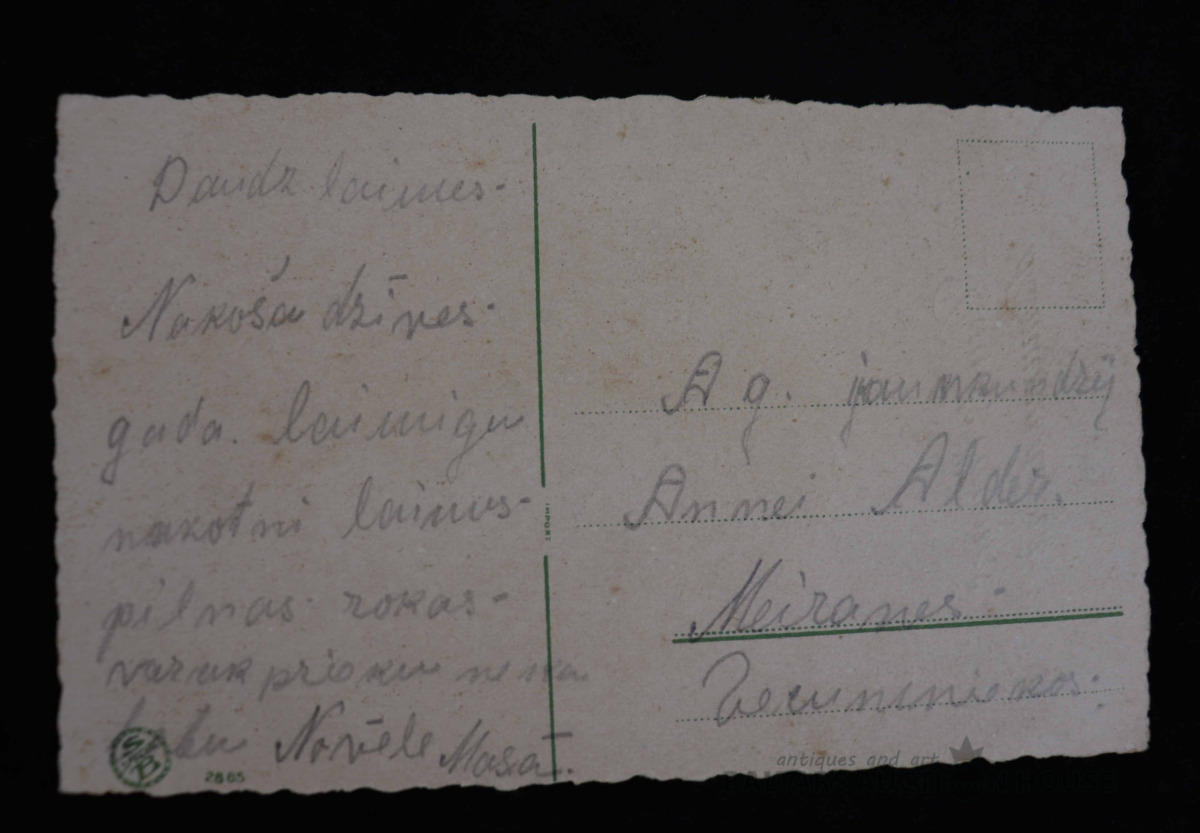 Daudz laimes-
Nakošā dzīves-
gada. laimigu
nakotni laimes-
pilnas rokas-
vairak prieku neka
Novēle Masa.
2865
IMPORT
A g. jaunkundzij
Annei Alder.
Meiranes-
antiques and art